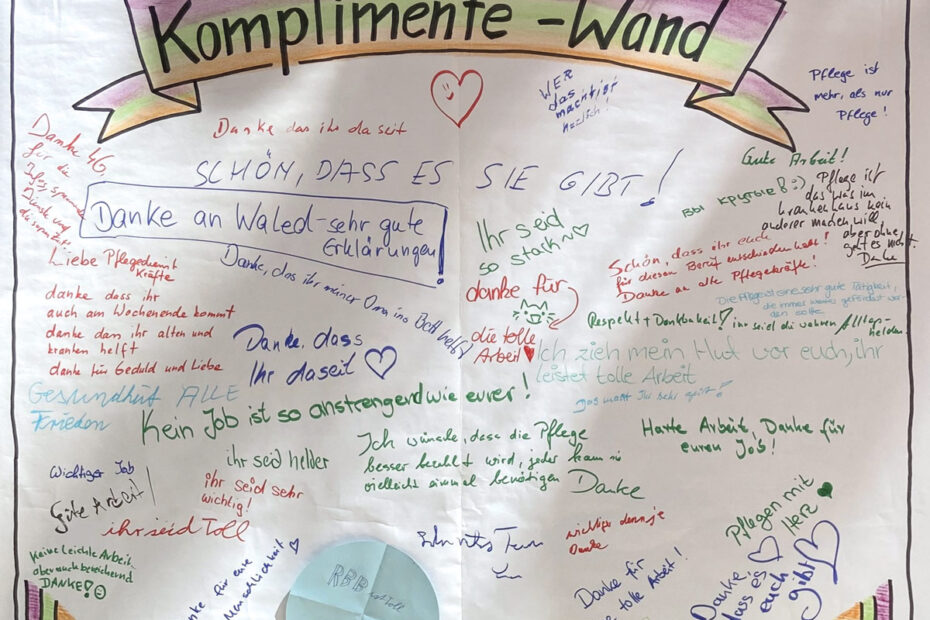 Komplimente-Wand
WER
das macht, ist
herzlich!
Pflege ist
mehr, als nur
Pflege!
Danke das ihr da seit
Danke 4G,
für die
Infos, spannende
Dienste und
SCHÖN, DASS ES SIE GIBT!
Gute Arbeit!
ВЫ КРУТЫЕ! :)
Pflege ist
das was im
krankenhaus kein
anderer machen will
aber ohne
geht es nicht.
Danke
Danke an Waled-sehr gute
Erklärungen!
Ihr seid
so stark~♡
Schön, dass ihr euch
für diesen Beruf entschieden habt!
Danke an alle Pflegekräfte!
Liebe Pflegedienst
Kräfte
danke dass ihr
auch am Wochenende kommt
danke dass ihr alten und
kranken helft
danke für Geduld und Liebe
Danke, das ihr meiner Oma ins Bett helft
danke für
die tolle
Arbeit ♥
Die Pflege ist eine sehr gute Tätigkeit,
die immer weiter gefördert wer-
den sollte
Respekt + Dankbarkeit! ihr seid die wahren Alltags-
helden
Danke, dass
Ihr da seit ♡
Ich zieh mein Hut vor euch, ihr
leistet tolle Arbeit
das macht Ihr sehr gut!
Gesundheit ALLE
Frieden
Kein Job ist so anstrengend wie eurer!
Ich wünsche, dass die Pflege
besser bezahlt wird, jeder kann sie
vielleicht einmal benötigen
Harte Arbeit, Danke für
euren Job!
Wichtiger Job
ihr seid helder
Ihr seid sehr
wichtig!
Danke
Gute Arbeit!
ihr seid Toll
wichtiger denn je
Danke
Pflegen mit
Herz
Keine leichte Arbeit
aber auch bereichernd
DANKE!
für eure
Menschlichkeit ♡
RBB ist Toll
Danke für
tolle Arbeit!
Danke
dass es
euch
gibt ♡